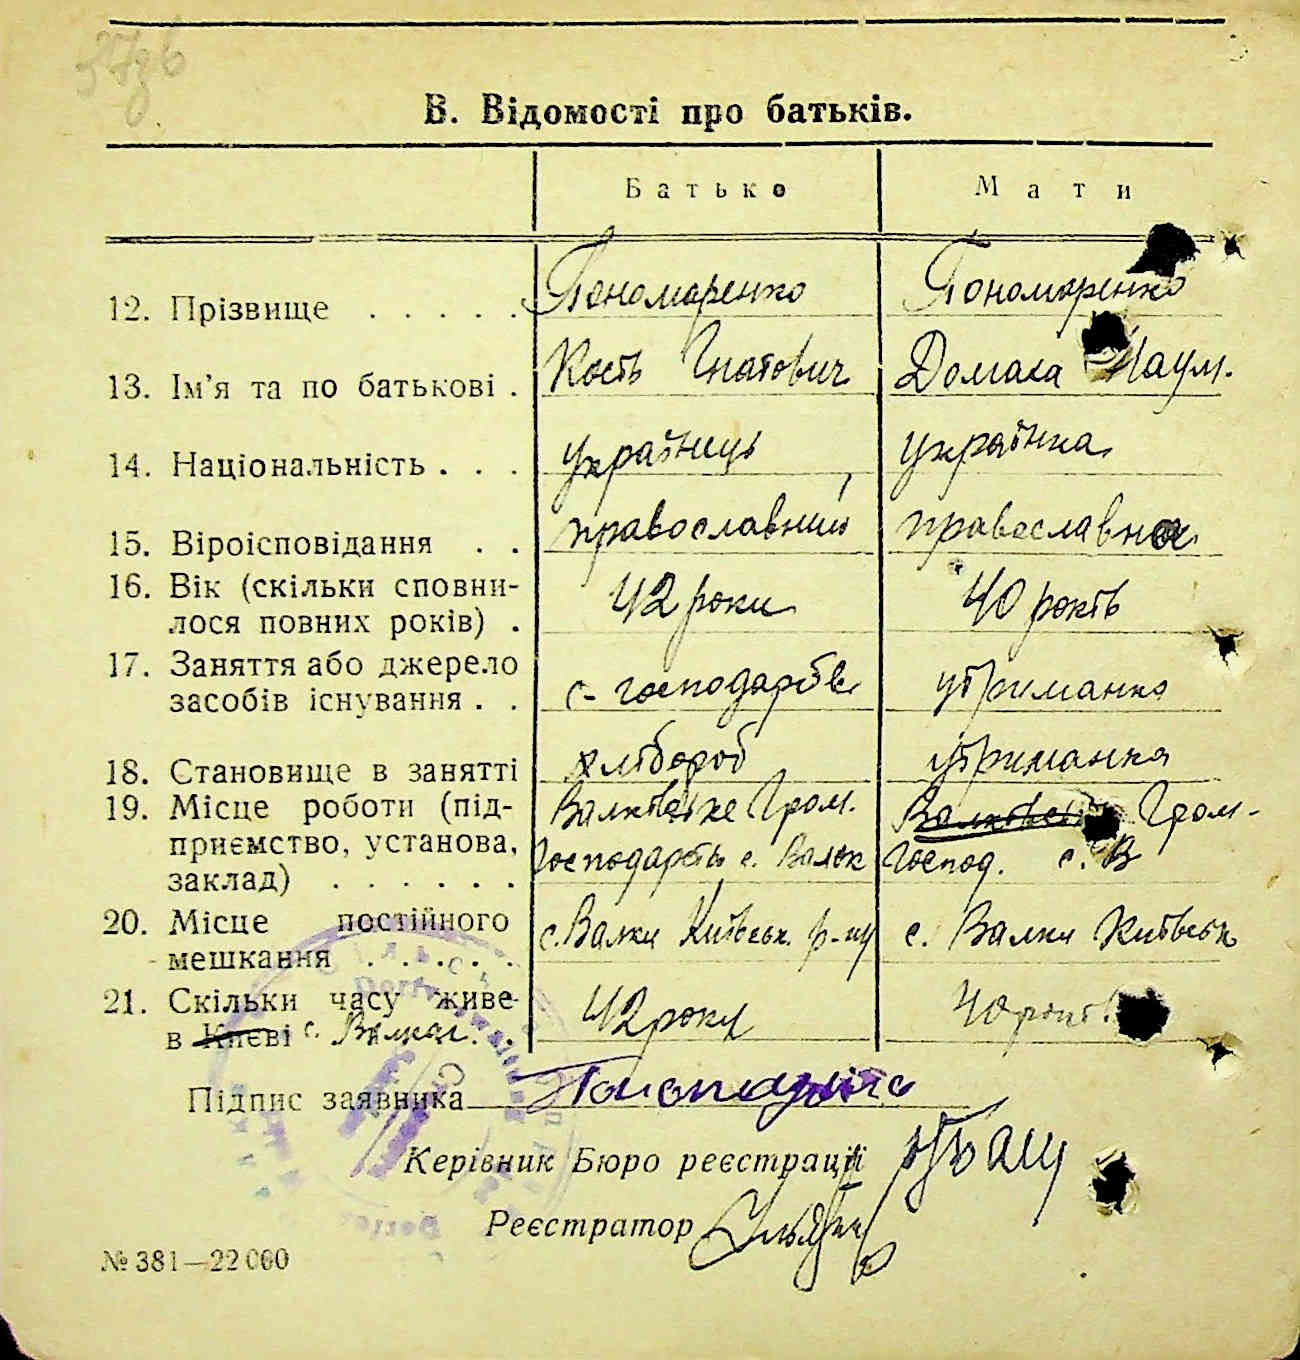 37зв
В. Відомості про батьків.
Батько Мати
12. Прізвище . . . . . Пономаренко Пономаренко
13. Ім'я та по батькові . Кость Гнатович Домаха Наум.
14. Національність . . . українець українка
15. Віроісповідання . . православний православна
16. Вік (скільки сповни-
лося повних років) . 42 роки 40 років
17. Заняття або джерело
засобів існування . . с-господарство утриманка
18. Становище в занятті хлібороб утриманка
19. Місце роботи (під- Валківське Гром. Валківськ Гром-
приємство, установа, Господарств с. Вальк Господ. с. В
заклад) . . . . . .
20. Місце постійного
мешкання . . . . . с. Валки Київськ. р-ну с. Валки Київськ
21. Скільки часу живе
в Києві с. Валках . . 42 роки 40 років
Підпис заявника Пономаренко
Керівник Бюро реєстрації
Реєстратор
№ 381—22 000